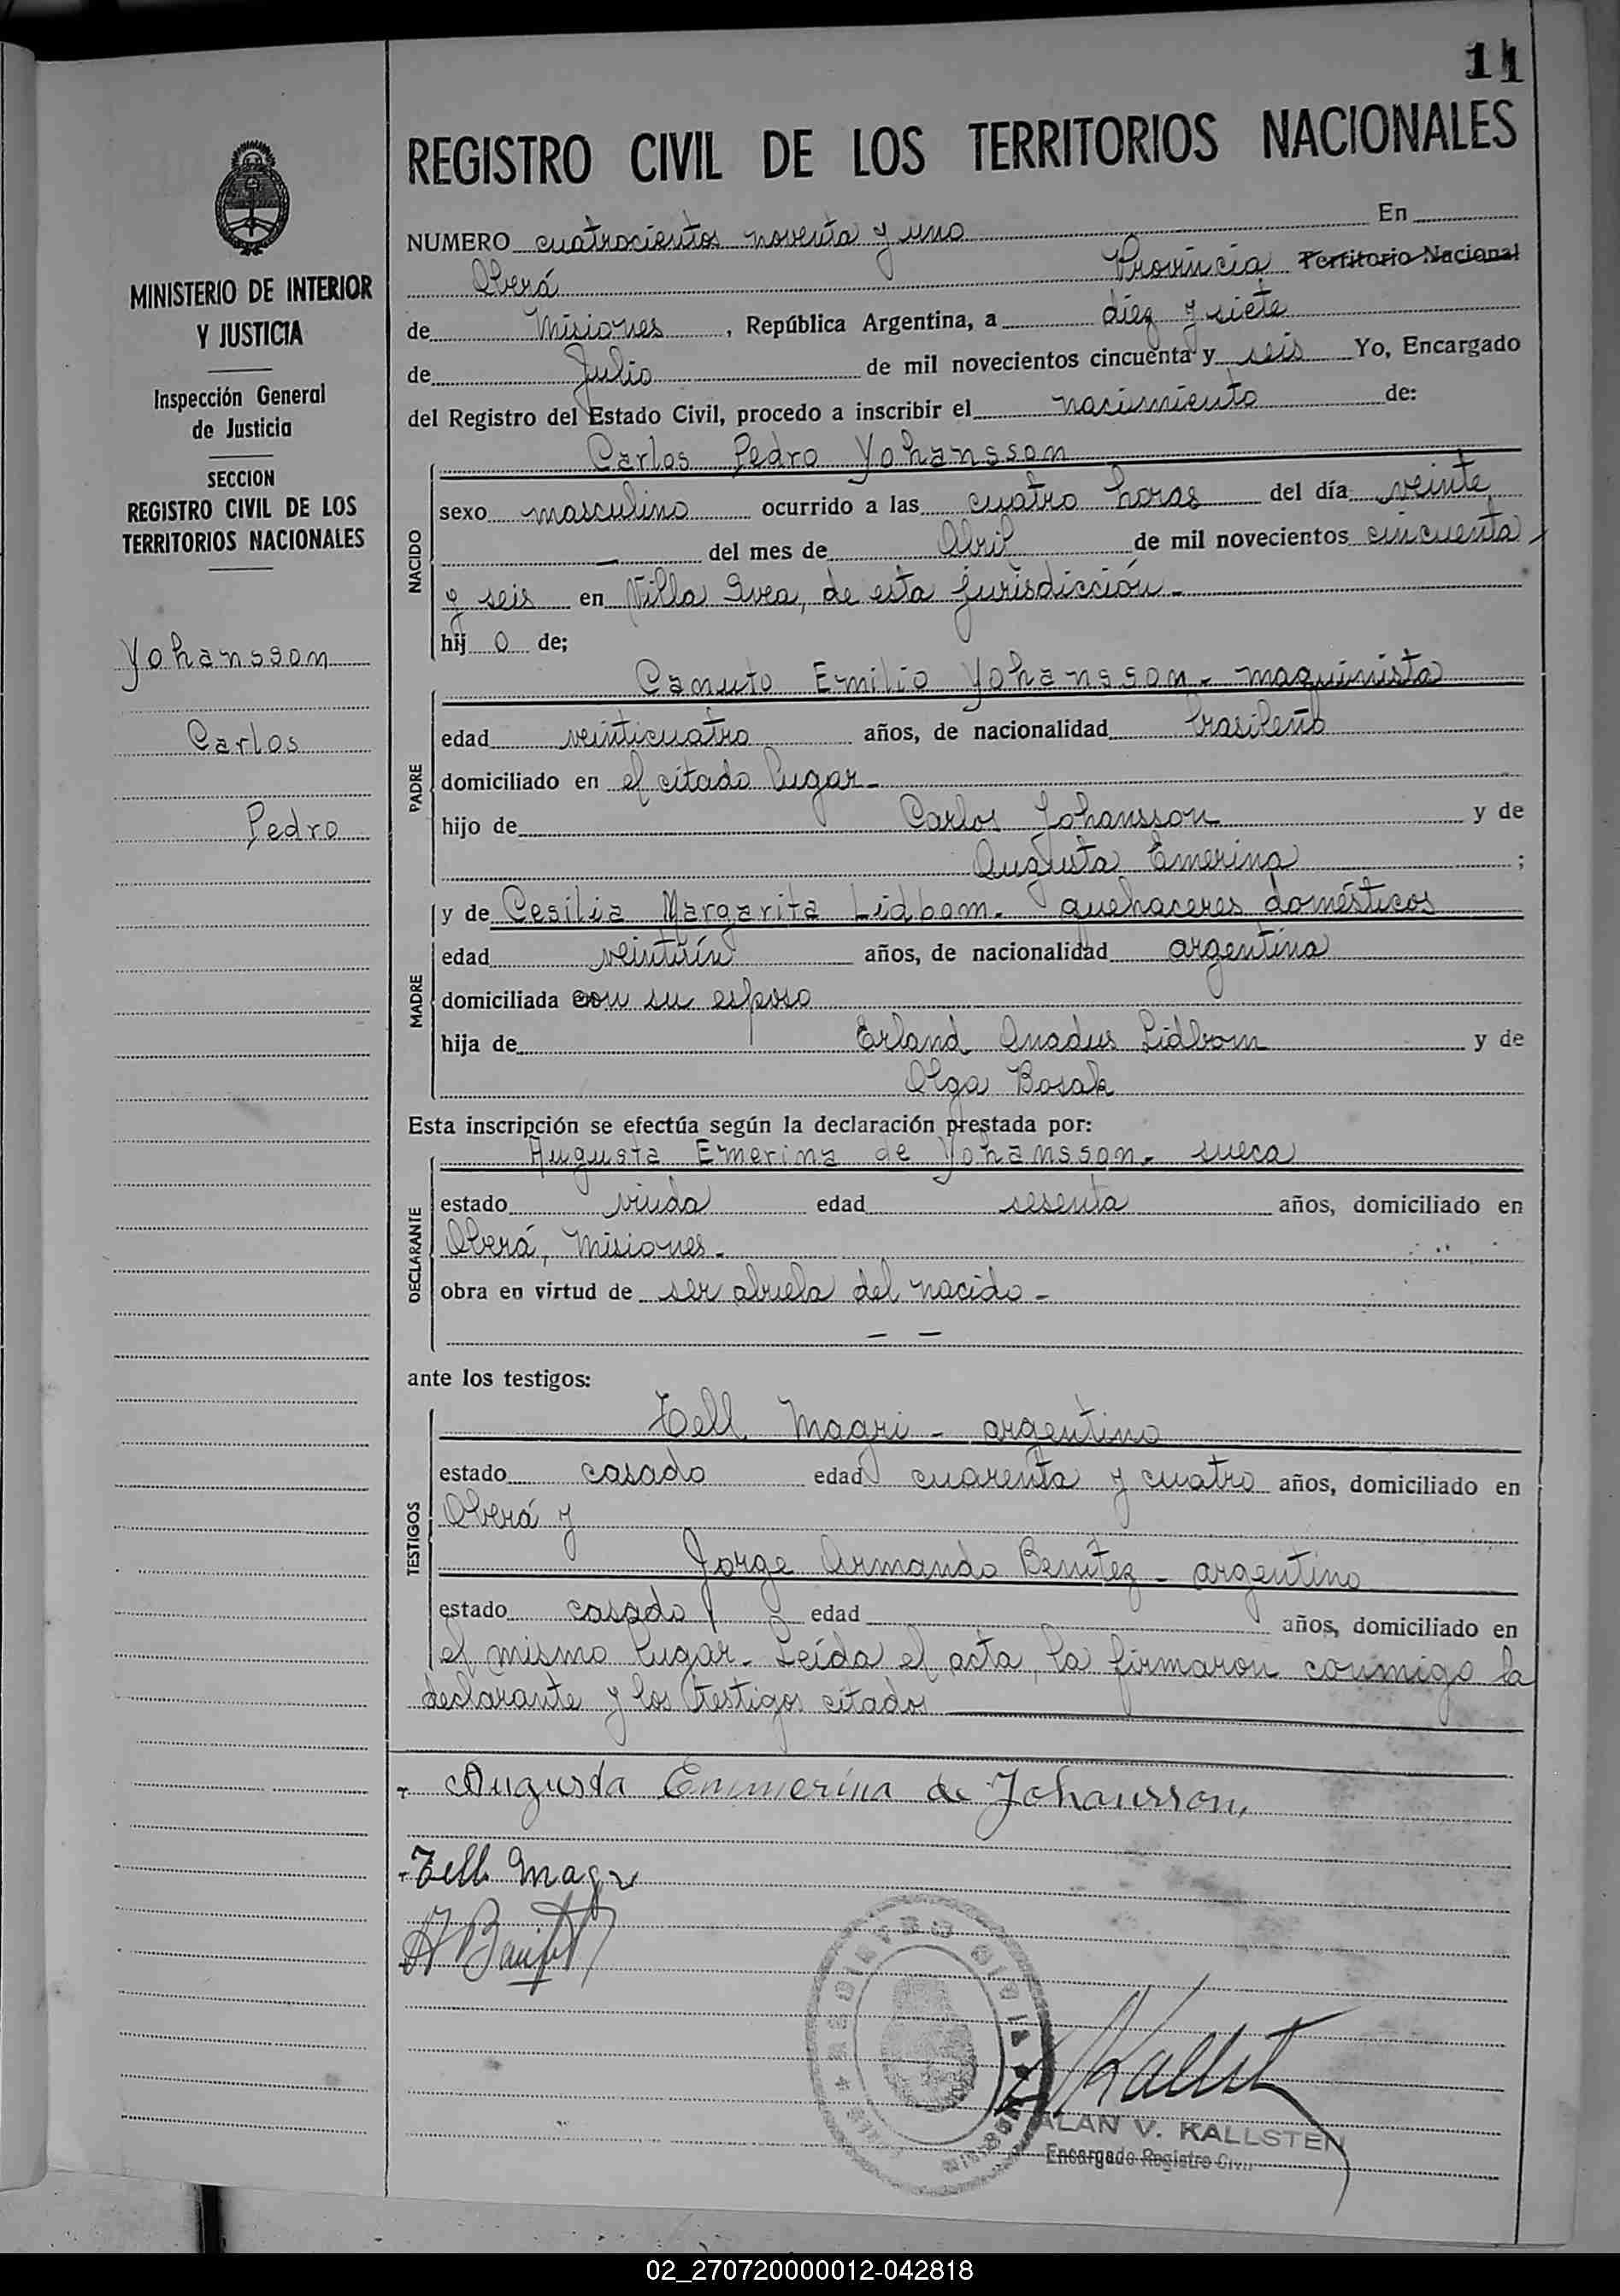 11
REGISTRO CIVIL DE LOS TERRITORIOS NACIONALES
MINISTERIO DE INTERIOR
Y JUSTICIA
Inspección General
de Justicia
SECCION
REGISTRO CIVIL DE LOS
TERRITORIOS NACIONALES
Yohansson
Carlos
Pedro
NUMERO cuatrocientos noventa y uno En
Oberá Provincia Territorio Nacional
de Misiones, República Argentina, a diez y siete
de Julio de mil novecientos cincuenta y seis Yo, Encargado
del Registro del Estado Civil, procedo a inscribir el nacimiento de:
Carlos Pedro Yohansson
NACIDO
sexo masculino ocurrido a las cuatro horas del día veinte
del mes de Abril de mil novecientos cincuenta
y seis en Villa Svea, de esta jurisdicción-
hij o de;
Canuto Emilio Yohansson- maquinista
PADRE
edad veinticuatro años, de nacionalidad brasileño
domiciliado en el citado lugar-
hijo de Carlos Johansson y de
Augusta Emerina ;
y de Cesilia Margarita Lidbom- quehaceres domésticos
MADRE
edad años, de nacionalidad argentina
domiciliada con su esposo
hija de Erland Lidbom y de
Olga Bosak
Esta inscripción se efectúa según la declaración prestada por:
Augusta Emerina de Yohansson- sueca
DECLARANTE
estado viuda edad sesenta años, domiciliado en
Oberá, Misiones-
obra en virtud de ser abuela del nacido-
ante los testigos:
Tell Magri - argentino
TESTIGOS
estado casado edad cuarenta y cuatro años, domiciliado en
Oberá y
Jorge Armando Benítez - argentino
estado casado edad años, domiciliado en
el mismo lugar- Leída el acta, la firmaron conmigo la
declarante y los testigos citados
Augusta Emmerina de Johansson,
Tell Magri
ALAN V. KALLSTEN
Encargado Registro Civil
02_270720000012-042818